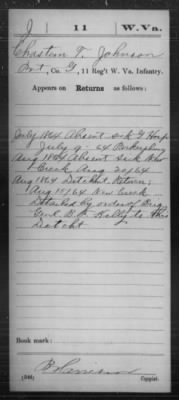 J | 11 | W. Va.
Chastein T. Johnson
Pvt, Co. G, 11 Reg't W. Va. Infantry.
Appears on Returns as follows:
July 1864 Absent sick G. Hosp
July 9-64
Aug 1864 Absent Sick New
Creek Aug 20/64
Aug 1864 Detchmt. Return;
Aug 10/64 New Creek
Detailed by order of Brig
Genl B. F. Kelly to this
Detcht
Book mark:
(546) Copyist.